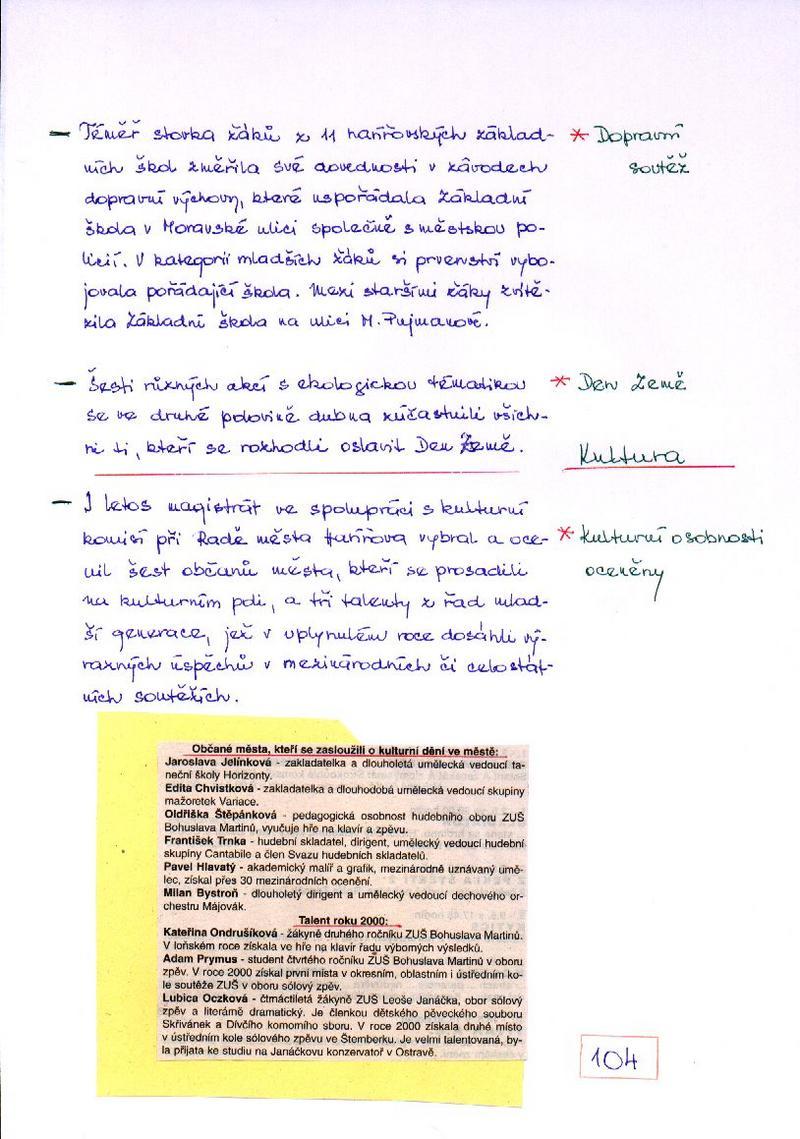 – Téměř stovka žáků z 11 havířovských základ-
ních škol změřila své dovednosti v závodech
dopravní výchovy, které uspořádala Základní
škola v Moravské ulici společně s městskou po-
licií. V kategorii mladších žáků si prvenství vybo-
jovala pořádající škola. Mezi staršími žáky zvítě-
zila Základní škola na ulici M. Pujmanové.
* Dopravní
soutěž
– Šesti různých akcí s ekologickou tématikou
se ve druhé polovině dubna zúčastnili všich-
ni ti, kteří se rozhodli oslavit Den Země.
* Den Země
Kultura
– I letos magistrát ve spolupráci s kulturní
komisí při Radě města Havířova vybral a oce-
nil šest občanů města, kteří se prosadili
na kulturním poli, a tři talenty z řad mlad-
ší generace, jež v uplynulém roce dosáhli vý-
razných úspěchů v mezinárodních či celostát-
ních soutěžích.
* Kulturní osobnosti
oceněny
Občané města, kteří se zasloužili o kulturní dění ve městě:
Jaroslava Jelínková - zakladatelka a dlouholetá umělecká vedoucí ta-
neční školy Horizonty.
Edita Chvistková - zakladatelka a dlouhodobá umělecká vedoucí skupiny
mažoretek Variace.
Oldřiška Štěpánková - pedagogická osobnost hudebního oboru ZUŠ
Bohuslava Martinů, vyučuje hře na klavír a zpěvu.
František Trnka - hudební skladatel, dirigent, umělecký vedoucí hudební
skupiny Cantabile a člen Svazu hudebních skladatelů.
Pavel Hlavatý - akademický malíř a grafik, mezinárodně uznávaný umě-
lec, získal přes 30 mezinárodních ocenění.
Milan Bystroň - dlouholetý dirigent a umělecký vedoucí dechového or-
chestru Májovák.
Talent roku 2000:
Kateřina Ondrušíková - žákyně druhého ročníku ZUŠ Bohuslava Martinů.
V loňském roce získala ve hře na klavír řadu výborných výsledků.
Adam Prymus - student čtvrtého ročníku ZUŠ Bohuslava Martinů v oboru
zpěv. V roce 2000 získal první místa v okresním, oblastním i ústředním ko-
le soutěže ZUŠ v oboru sólový zpěv.
Lubica Oczková - čtrnáctiletá žákyně ZUŠ Leoše Janáčka, obor sólový
zpěv a literárně dramatický. Je členkou dětského pěveckého souboru
Skřivánek a Dívčího komorního sboru. V roce 2000 získala druhé místo
v ústředním kole sólového zpěvu ve Šternberku. Je velmi talentovaná, by-
la přijata ke studiu na Janáčkovu konzervatoř v Ostravě.
104